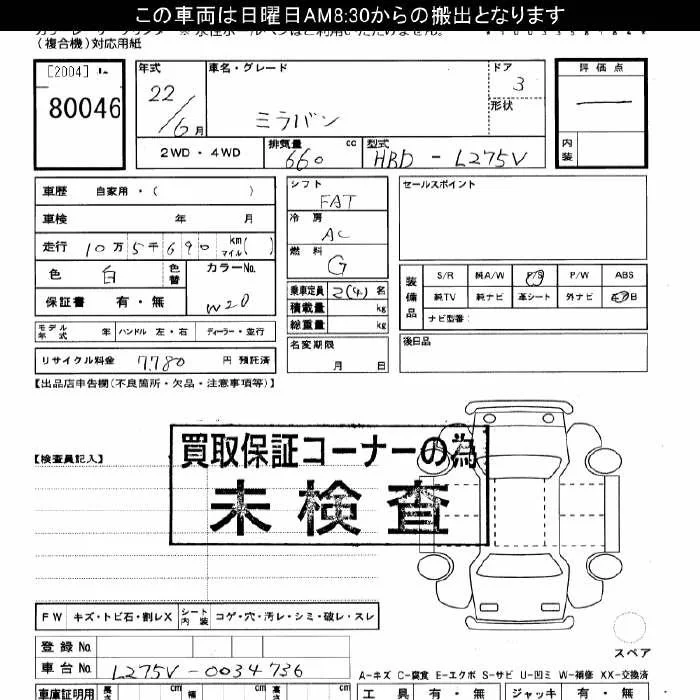 この車両は日曜日AM8:30からの搬出となります
(複合機)対応用紙
[2004]
80046
年式
22/6月
車名・グレード
ミラバン
ドア
3
形状
評価点
—
内装
2WD・4WD
排気量 660 cc
型式 HBD-L275V
車歴 自家用・( )
車検 年 月
走行 10万5千690 km マイル( )
色 白 色替 カラーNo. W20
保証書 有・無
モデル年式 年 ハンドル 左・右 ディーラー・並行
リサイクル料金 7,780 円 預託済
シフト
FAT
冷房
AC
燃料
G
乗車定員 2(4) 名
積載量 kg
総重量 kg
名変期限
月 日
セールスポイント
装備品
S/R 純A/W P/S P/W ABS
純TV 純ナビ 革シート 外ナビ
ナビ型番:
後日品
【出品店申告欄(不良箇所・欠品・注意事項等)】
【検査員記入】
買取保証コーナーの為
未検査
FW キズ・トビ石・割レX シート内装 コゲ・穴・汚レ・シミ・破レ・スレ
スペア
登録No.
車台No. L275V-0034736
A-キズ C-腐食 E-エクボ S-サビ U-凹ミ W-補修 XX-交換済
車庫証明用 長さ cm 幅 cm 高さ cm
工具 有・無 ジャッキ 有・無